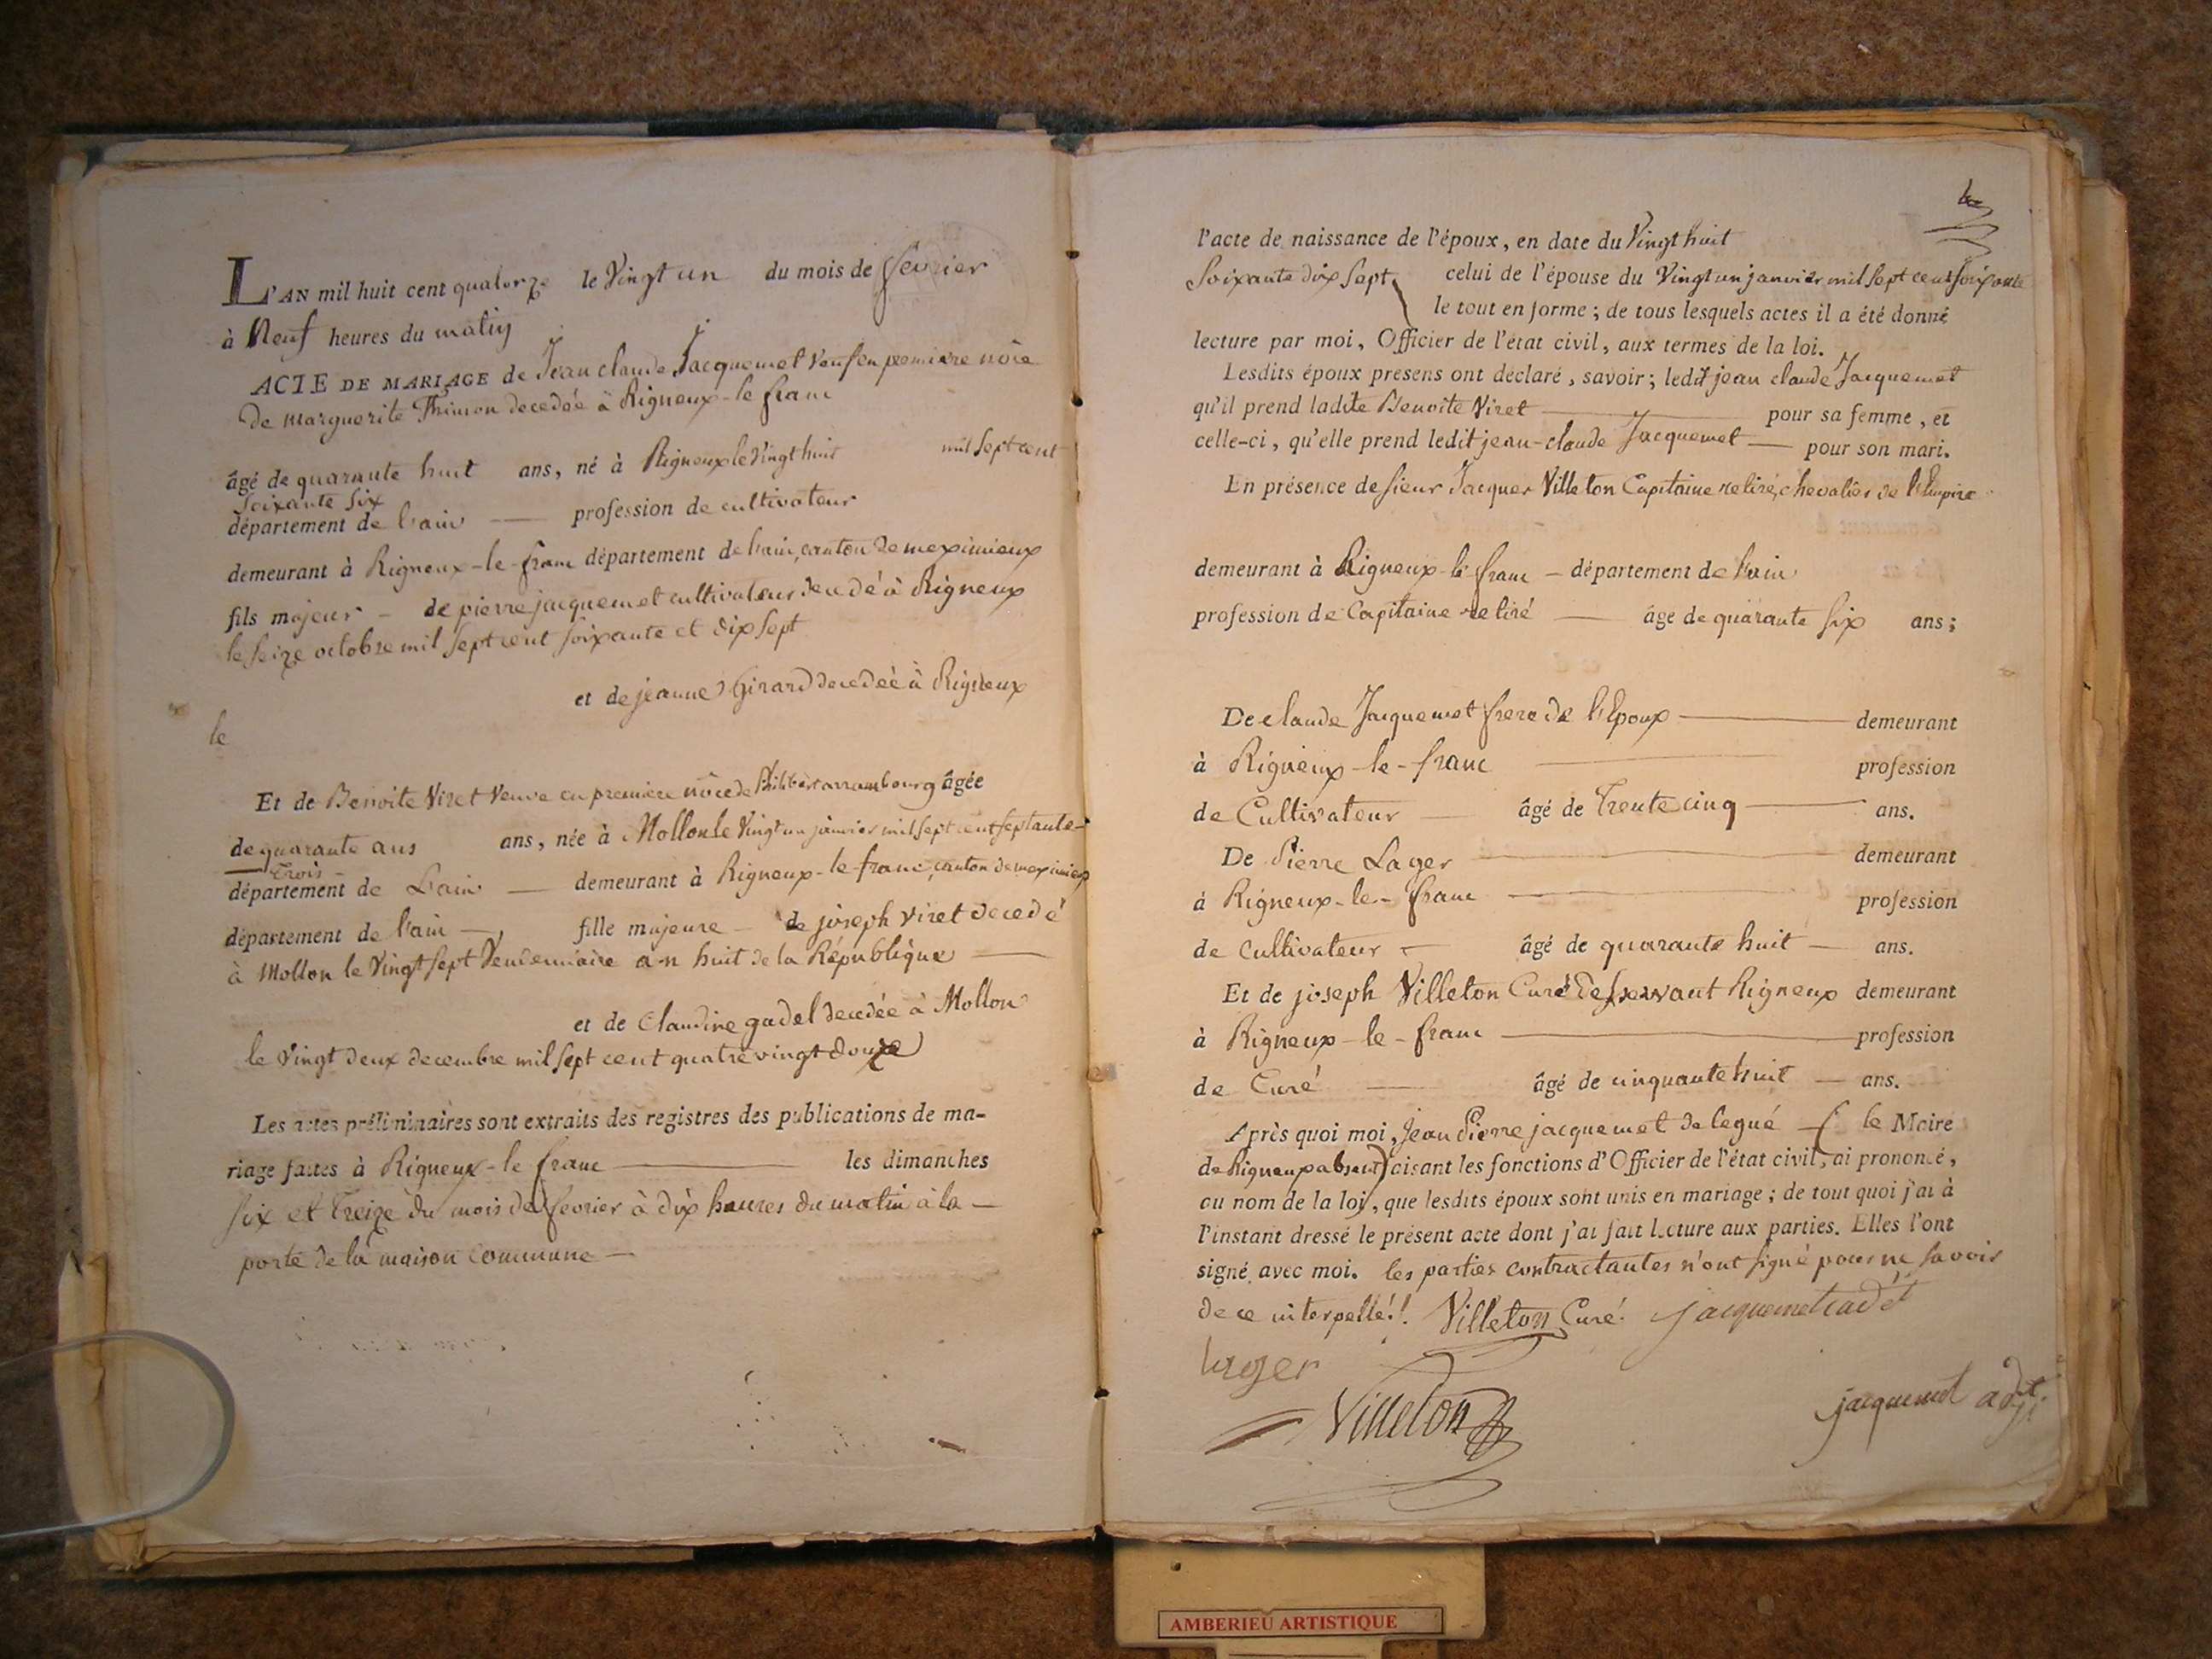 L'AN mil huit cent quatorze le Vingt un du mois de fevrier
à Neuf heures du matin
ACTE DE MARIAGE de Jean claude Jacquemet Veuf en premiere nôce
De marguerite Thimon decedée à Rigneux-le franc
âgé de quarante huit ans, né à Rigneux le Vingt huit mil Sept cent
Soixante Six
département de l'ain — profession de cultivateur
demeurant à Rigneux-le-franc département de l'ain, canton de meximieux
fils majeur — de pierre jacquemet cultivateur decedé à Rigneux
le Seize octobre mil Sept cent soixante et dix Sept
et de jeanne Girard decedée à Rigneux
le
Et de Benoite Viret Veuve en premiere nôce de Philibert arrambourg âgée
de quarante ans ans, née à Mollon le Vingt un janvier mil Sept cent Septante-
Trois -
département de L'ain — demeurant à Rigneux-le-franc, canton de meximieux
département de l'ain —, fille majeure — de joseph Viret decedé
à Mollon le Vingt Sept Vendemiaire an huit de la République —
et de Claudine gadel decedée à Mollon
le Vingt deux decembre mil Sept cent quatre vingt douze
Les actes préliminaires sont extraits des registres des publications de ma-
riage faites à Rigneux-le franc — les dimanches
Six et Treize du mois de fevrier à dix heures du matin à la —
porte de la maison Commune —
l'acte de naissance de l'époux, en date du Vingt huit
Soixante dix Sept, celui de l'épouse du Vingt un janvier mil Sept cent Soixante
le tout en forme ; de tous lesquels actes il a été donné
lecture par moi, Officier de l'état civil, aux termes de la loi.
Lesdits époux présens ont déclaré, savoir ; ledit jean claude Jacquemet
qu'il prend ladite Benoite Viret — pour sa femme, et
celle-ci, qu'elle prend ledit jean-claude Jacquemet — pour son mari.
En présence de Sieur Jacques Villeton Capitaine retiré, chevalier de l'Empire
demeurant à Rigneux-le franc — département de l'ain
profession de Capitaine retiré — âgé de quarante Six ans ;
De claude Jacquemet frere de l'Epoux — demeurant
à Rigneux-le-franc — profession
de Cultivateur âgé de Trente cinq — ans.
De Pierre Lager — demeurant
à Rigneux-le-franc — profession
de Cultivateur — âgé de quarante huit — ans.
Et de joseph Villeton Curé Desservant Rigneux demeurant
à Rigneux-le-franc — profession
de Curé — âgé de cinquante huit — ans.
Après quoi moi, Jean Pierre jacquemet delegué — ( le Maire
de Rigneux absent) faisant les fonctions d'Officier de l'état civil, ai prononcé,
au nom de la loi, que lesdits époux sont unis en mariage ; de tout quoi j'ai à
l'instant dressé le présent acte dont j'ai fait lecture aux parties. Elles l'ont
signé avec moi. les parties contractantes n'ont signé pour ne Savoir
de ce interpellé !! Villeton Curé jacquemet cadet
lager
Villeton
jacquemet adjt
AMBERIEU ARTISTIQUE